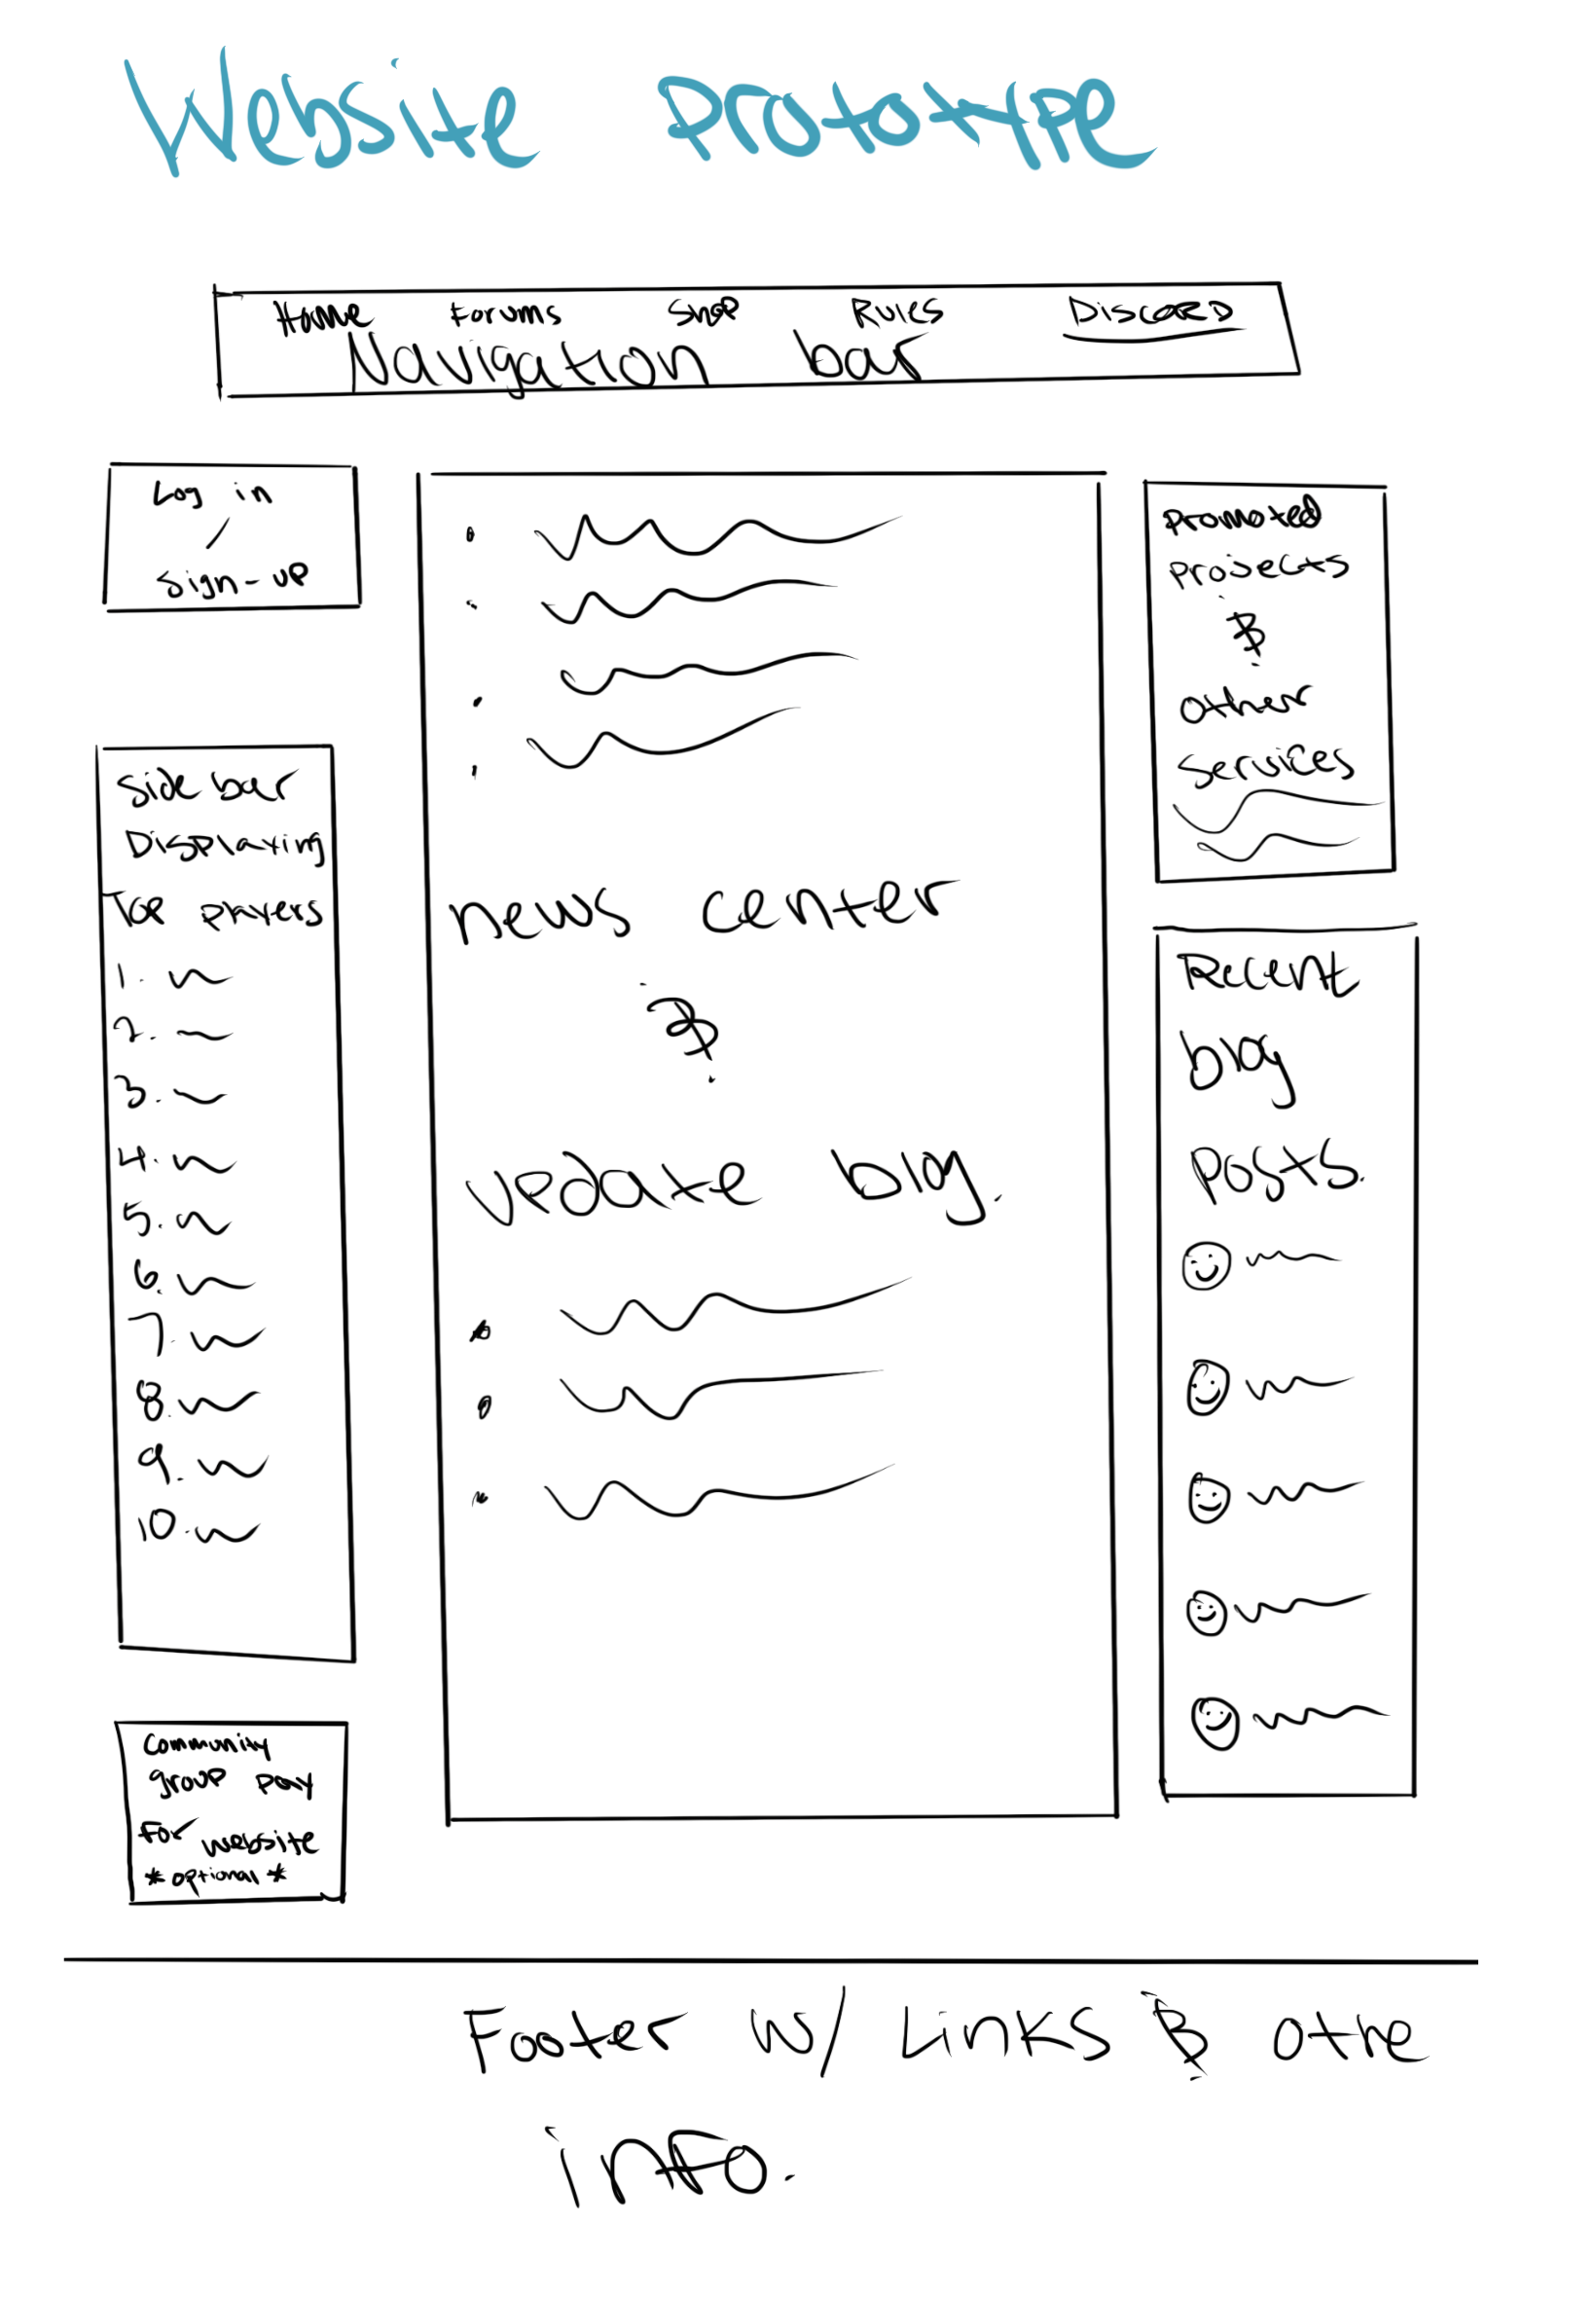 Website Prototype
Home Forums Shop Rules Discord
Navigation bar
Log in
/
Sign-up
Side bar
Displaying
Top players
1.
2.
3.
4.
5.
6.
7.
8.
9.
10.
Community
group pay
For website
*optional*
news center
&
update blog.
Promoted
Projects
&
other
Services
Recent
blog
Posts.
Footer w/ Links & othe
info.